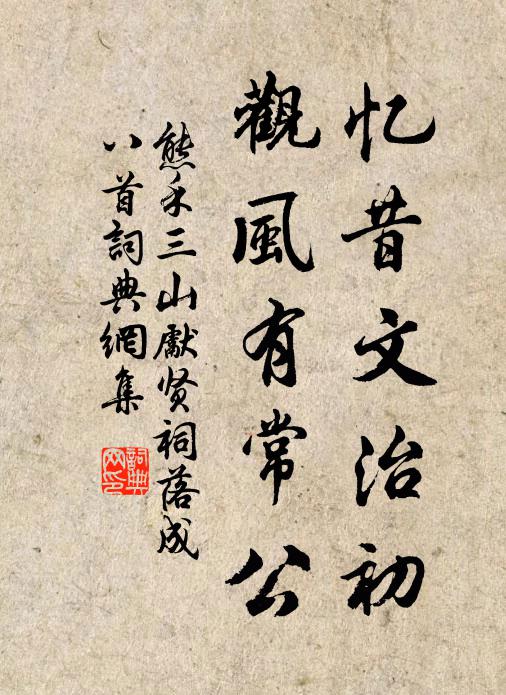 忆昔文治初
觀風有常公
熊禾三山獻贤祠落成
八首詞典網集
詞典網印